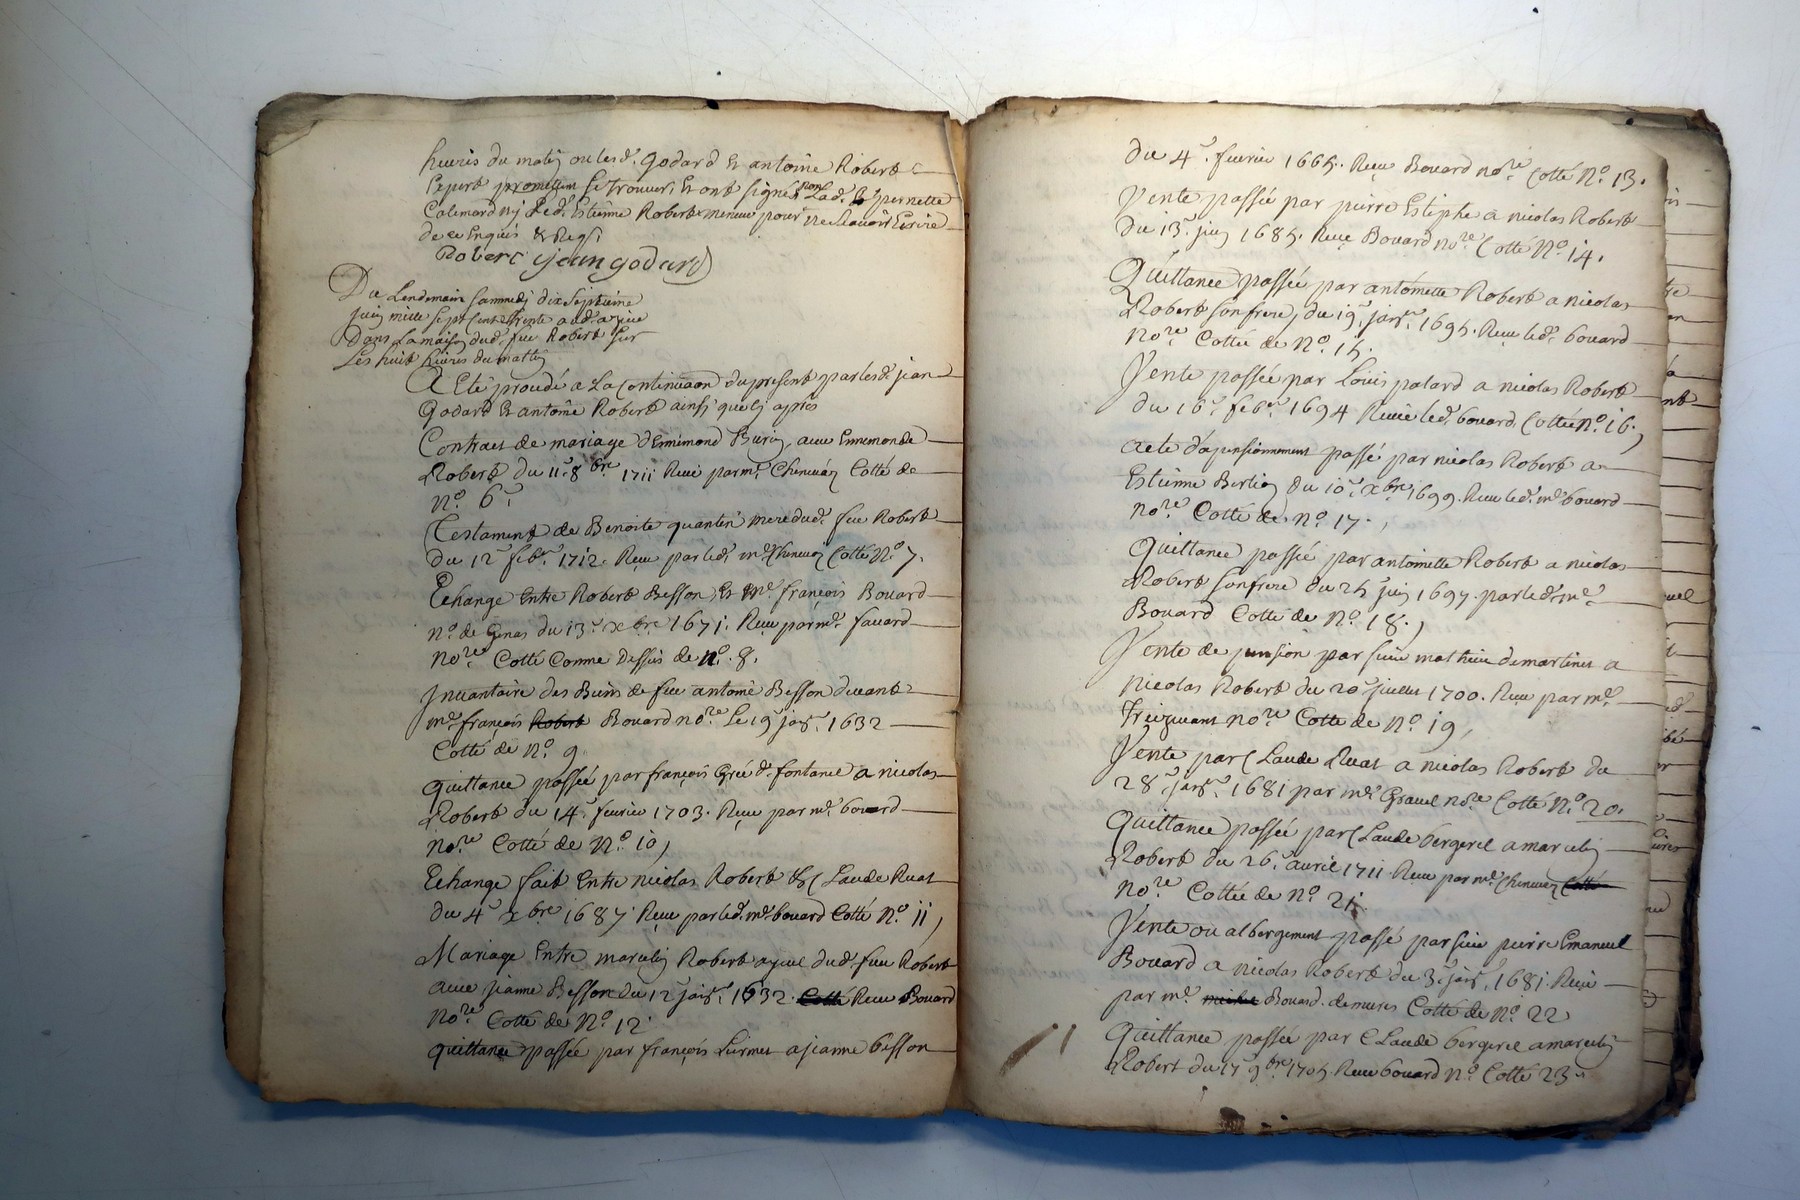 heures du matin ou lesd. Godard & antoine Robert
Expert promettent se trouver, & ont signé, non Lad. pernette
Calemard ny Led. Estienne Robert mineur pour ne scavoir Escrire
de ce Enquis & Req.
Robert jean godard
Du Lendemain Sammedy dix Septieme
juin mille sept Cent trente
Dans La maison dud. feu Robert sur
Les huit heures du mattin
A Eté procedé a La Continuaon du present par lesd. jean
Godard & antoine Robert ainsy que cy apres
Contract de mariage d'Ennimond Burin, avec Ennemonde
Robert du 11e 8bre 1711 Receu par me. Chenevaz Cotté de
No. 6.
Testament de Benoite quantin mere dud. feu Robert
du 12 febr. 1712. Receu par led. me. Chenevaz Cotté No. 7.
Echange Entre Robert Besson, & Me. françois Bouard
no. de Genas du 13. xbre 1671. Receu par me. favard
Nore. Cotté Comme dessus de No. 8.
Inventaire des Biens de feu antoine Besson devant
me. françois Robert Bouard nore. Le 19. janr. 1632
Cotté de No. 9.
quittance passée par françois Grée d. fontanel a nicolas
Robert du 14. fevrier 1703. Receu par me. bouard
nore. Cotté de No. 10,
Echange fait Entre nicolas Robert & Claude Ruat
du 4. xbre 1687. Receu par led. me. bouard Cotté No. 11,
Mariage Entre marcelin Robert ayeul dud. feu Robert
avec jeanne Besson du 12 janr. 1632. Cotté Receu Bouard
Nore. Cotté de No. 12.
quittance passée par françois a jeanne besson
du 4. fevrier 1665. Receu Bouard nore. Cotté No. 13.
Vente passée par pierre Estephe a nicolas Robert
du 13. juin 1685. Receu Bouard nore. Cotté No. 14.
Quittance passée par antoinette Robert a nicolas
Robert son frere, du 19. janr. 1695. Receu led. bouard
nore. Cottée de No. 15.
Vente passée par Louis palard a nicolas Robert
du 16. febr. 1694 Receue led. bouard, Cottée no. 16.,
acte d'apensionnement passé par nicolas Robert a
Estienne Berlioz du 10. xbre 1699. Receu led. me. bouard
nore. Cotté de no. 17.,
quittance passée par antoinette Robert a nicolas
Robert son frere du 25 juin 1697. par led. me.
Bouard Cotté de No. 18.,
Vente de pension par sieur mathieu demartinet a
nicolas Robert du 20. juillet 1700. Receu par me.
nore Cotté de No. 19,
Vente par Claude Ruat a nicolas Robert du
28. janr. 1681 par me. Gravel nore. Cotté No. 20.
quittance passée par Claude bergeret a marcelin
Robert du 26. avril 1711. Receu par me. Chenevaz Cotté
nore. Cottée de no. 21.
Vente ou albergement passé par sieur pierre Emanuel
Bouard a nicolas Robert du 3. janr. 1681. Receu
par me. michel Bouard. demeures Cotté de No. 22
Quittance passée par Claude bergeret a marcelin
Robert du 17 9bre 1705. Receu bouard no. Cotté 23.